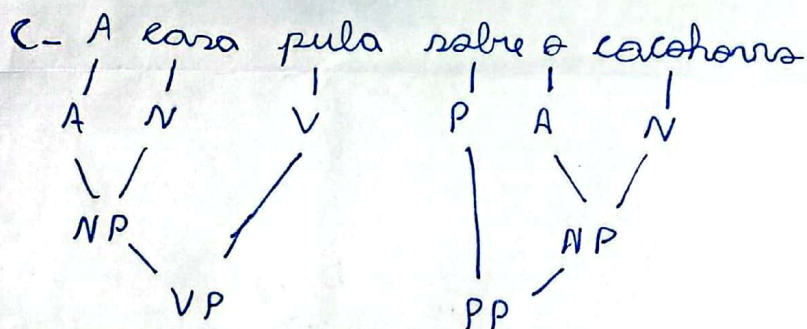 C- A casa pula sobre o cacohorro
A N V P A N
NP NP
VP PP